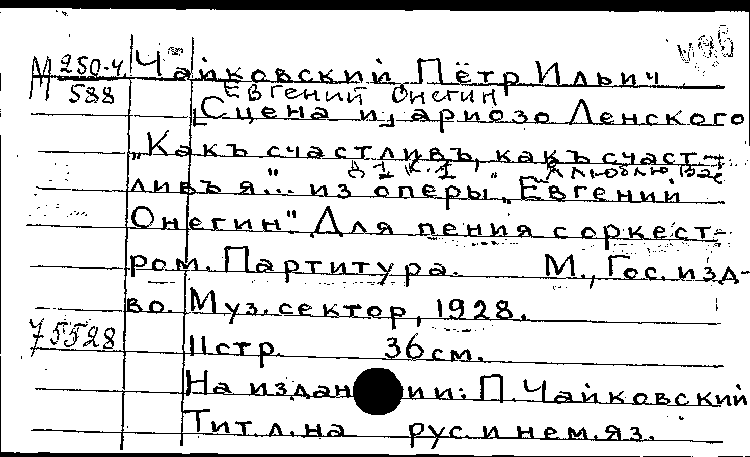 М 250-4
588
Чайковский Пётр Ильич
Евгений Онегин
[Сцена и] ариозо Ленского
„Какъ счастливъ, какъ счаст-
Д 1 к. 1 „Я люблю Вас
ливъ я"... из оперы „Евгений
Онегин". Для пения с оркест-
ром. Партитура. М., Гос. изд-
во. Муз. сектор, 1928.
75528
11 стр. 36 см.
На издан ии: П. Чайковский
Тит. л. на рус. и нем. яз.